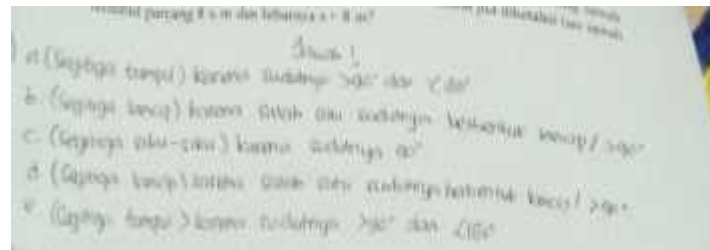 panjang 8 x m dan lebarnya x + 8 m?
Jawab !
a (Segitiga tumpul) karena sudutnya >90° dan <180°
b. (Segitiga lancip) karena salah satu sudutnya berbentuk lancip / >90°
c. (Segitiga siku-siku) karena sudutnya 90°
d (Segitiga lancip) karena salah satu sudutnya berbentuk lancip / >90°
e (Segitiga tumpul) karena sudutnya >90° dan <180°